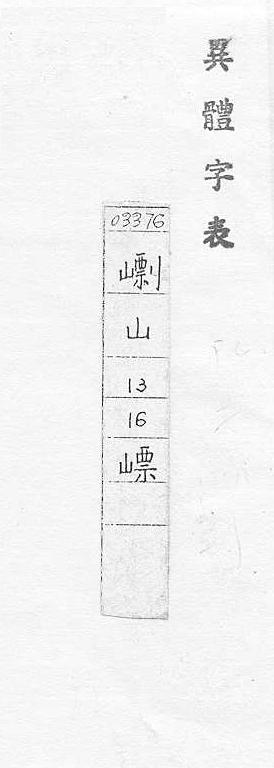 異體字表
03376
山
13
16